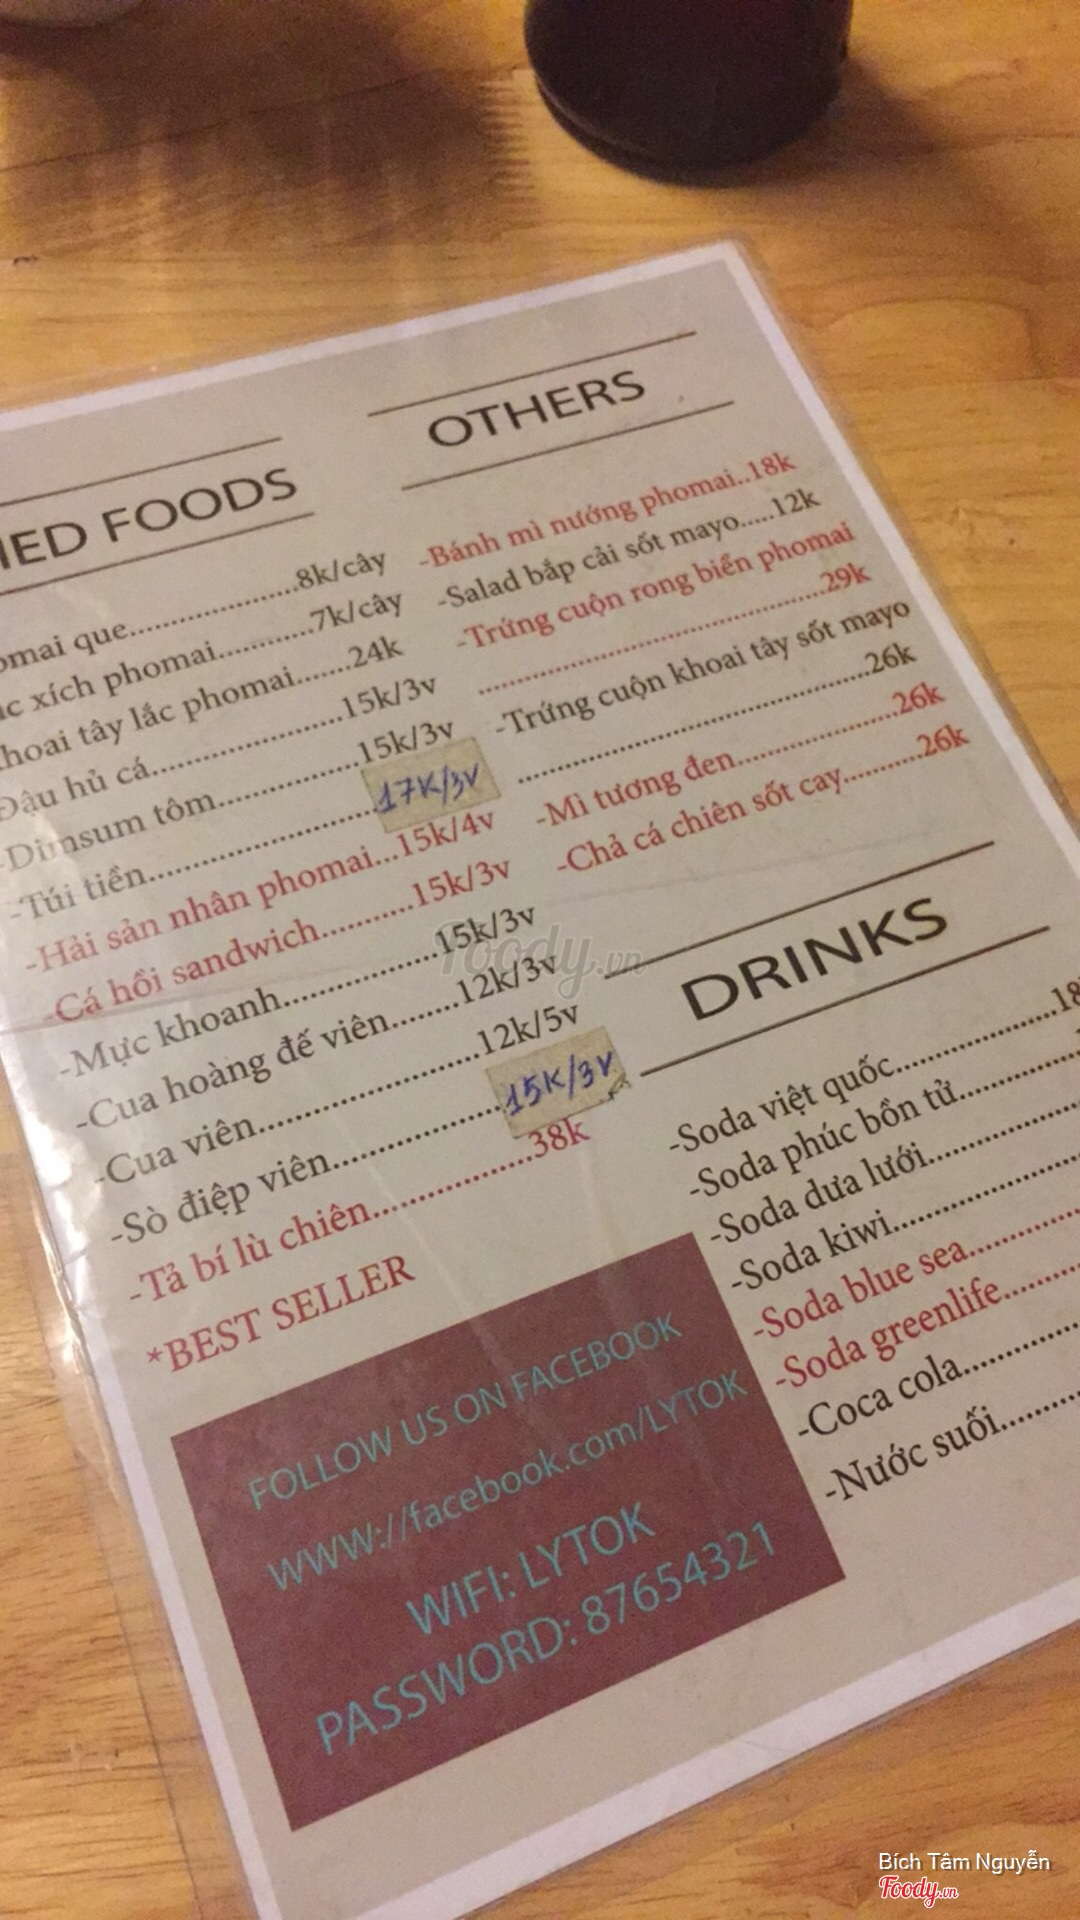 FOODS
phomai que....................8k/cây
xích phomai...........7k/cây
khoai tây lắc phomai.......24k
-Đậu hủ cá......................15k/3v
-Dimsum tôm................15k/3v
-Túi tiền..........................17K/3V
-Hải sản nhân phomai...15k/4v
-Cá hồi sandwich..........15k/3v
-Mực khoanh.................15k/3v
-Cua hoàng đế viên........12k/3v
-Cua viên.........................12k/5v
-Sò điệp viên...................15K/3V
-Tả bí lù chiên..................38k
*BEST SELLER
OTHERS
-Bánh mì nướng phomai..18k
-Salad bắp cải sốt mayo.....12k
-Trứng cuộn rong biển phomai
........................................29k
-Trứng cuộn khoai tây sốt mayo
........................................26k
-Mì tương đen...................26k
-Chả cá chiên sốt cay..........26k
DRINKS
-Soda việt quốc...................18
-Soda phúc bồn tử..............
-Soda dưa lưới..................
-Soda kiwi........................
-Soda blue sea..................
-Soda greenlife.................
-Coca cola........................
-Nước suối.......................
FOLLOW US ON FACEBOOK
WWW://facebook.com/LYTOK
WIFI: LYTOK
PASSWORD: 87654321
Foody.vn
Bích Tâm Nguyễn
Foody.vn